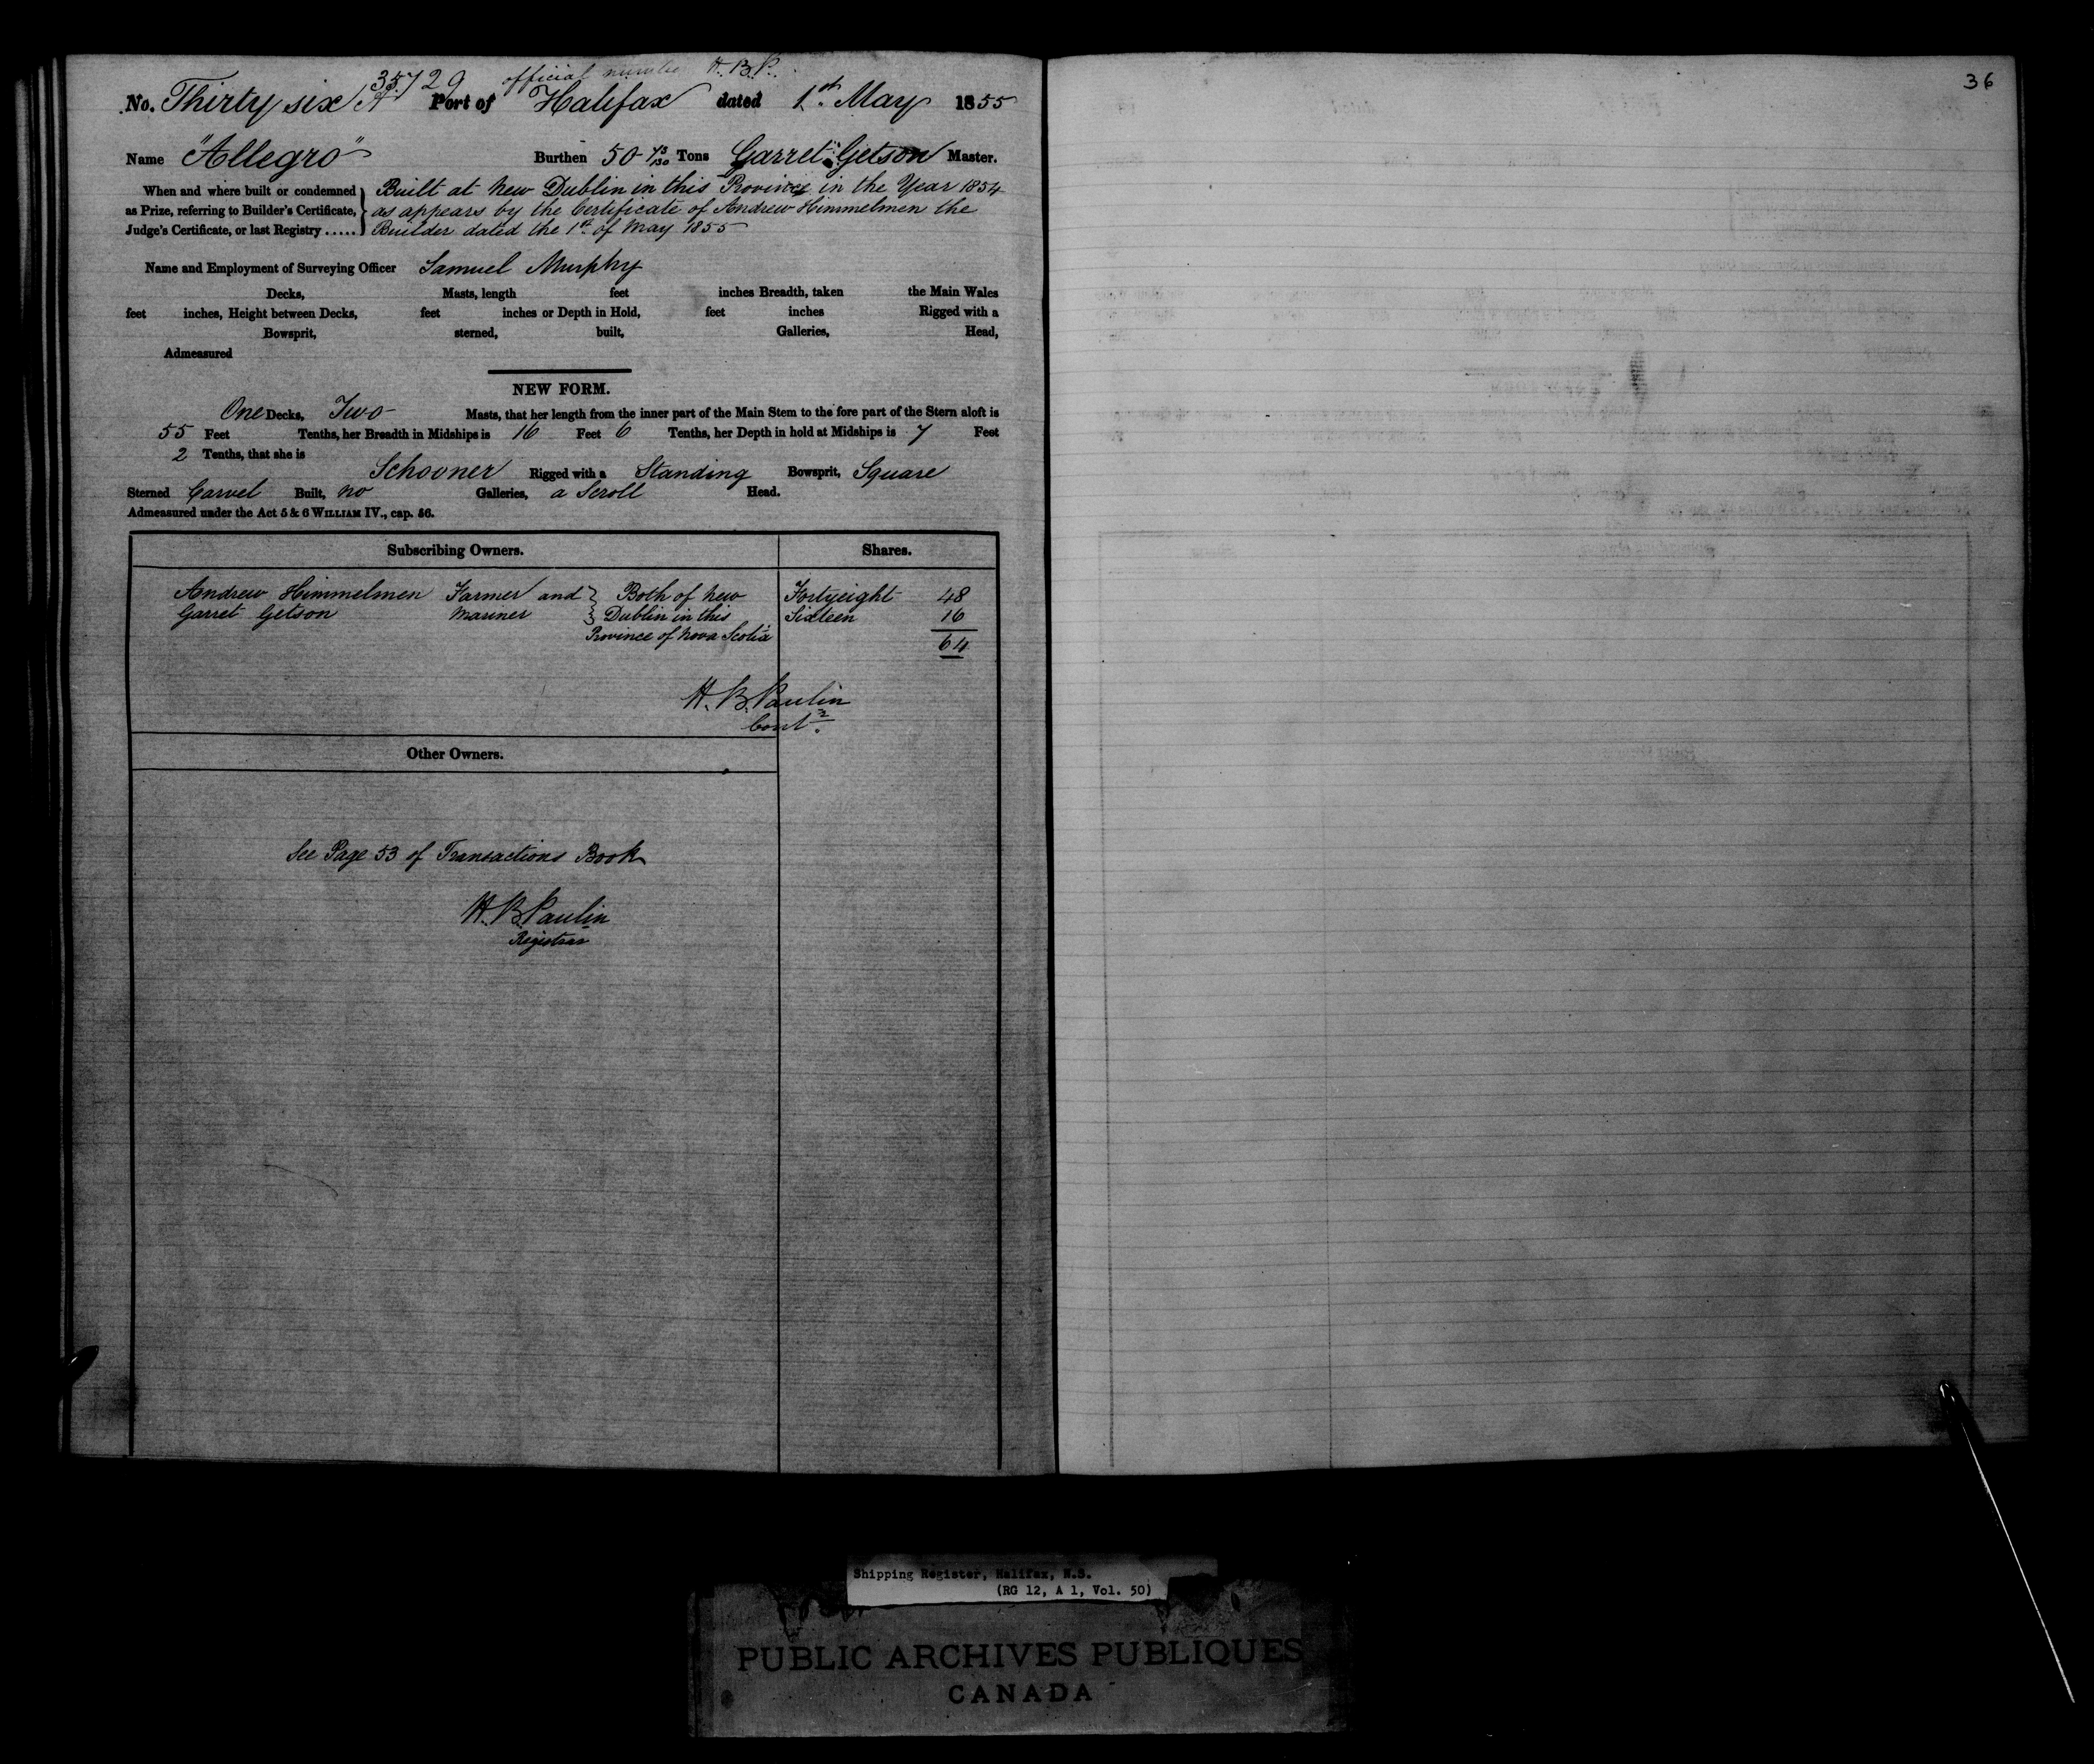 35729 official number H.B.P.
No. Thirty six A Port of Halifax dated 1st May 1855
Name "Allegro" Burthen 50 73/130 Tons Garret Getson Master.
When and where built or condemned as Prize, referring to Builder's Certificate, Judge's Certificate, or last Registry .....
Built at New Dublin in this Province in the Year 1854
as appears by the Certificate of Andrew Himmelmen the
Builder dated the 1st of May 1855
Name and Employment of Surveying Officer Samuel Murphy
Decks, Masts, length feet inches Breadth, taken the Main Wales
feet inches, Height between Decks, feet inches or Depth in Hold, feet inches Rigged with a
Bowsprit, sterned, built, Galleries, Head,
Admeasured
NEW FORM.
One Decks, Two Masts, that her length from the inner part of the Main Stem to the fore part of the Stern aloft is
55 Feet Tenths, her Breadth in Midships is 16 Feet 6 Tenths, her Depth in hold at Midships is 7 Feet
2 Tenths, that she is
Schooner Rigged with a Standing Bowsprit, Square
Sterned Carvel Built, no Galleries, a Scroll Head.
Admeasured under the Act 5 & 6 WILLIAM IV., cap. 56.
Subscribing Owners. Shares.
Andrew Himmelmen Farmer and } Both of New Fortyeight 48
Garret Getson Mariner } Dublin in this Sixteen 16
Province of Nova Scotia 64
H. B. Paulin
Contr.
Other Owners.
See Page 53 of Transactions Book
H. B. Paulin
Registrar
36
Shipping Register, Halifax, N.S.
(RG 12, A 1, Vol. 50)
PUBLIC ARCHIVES PUBLIQUES
CANADA